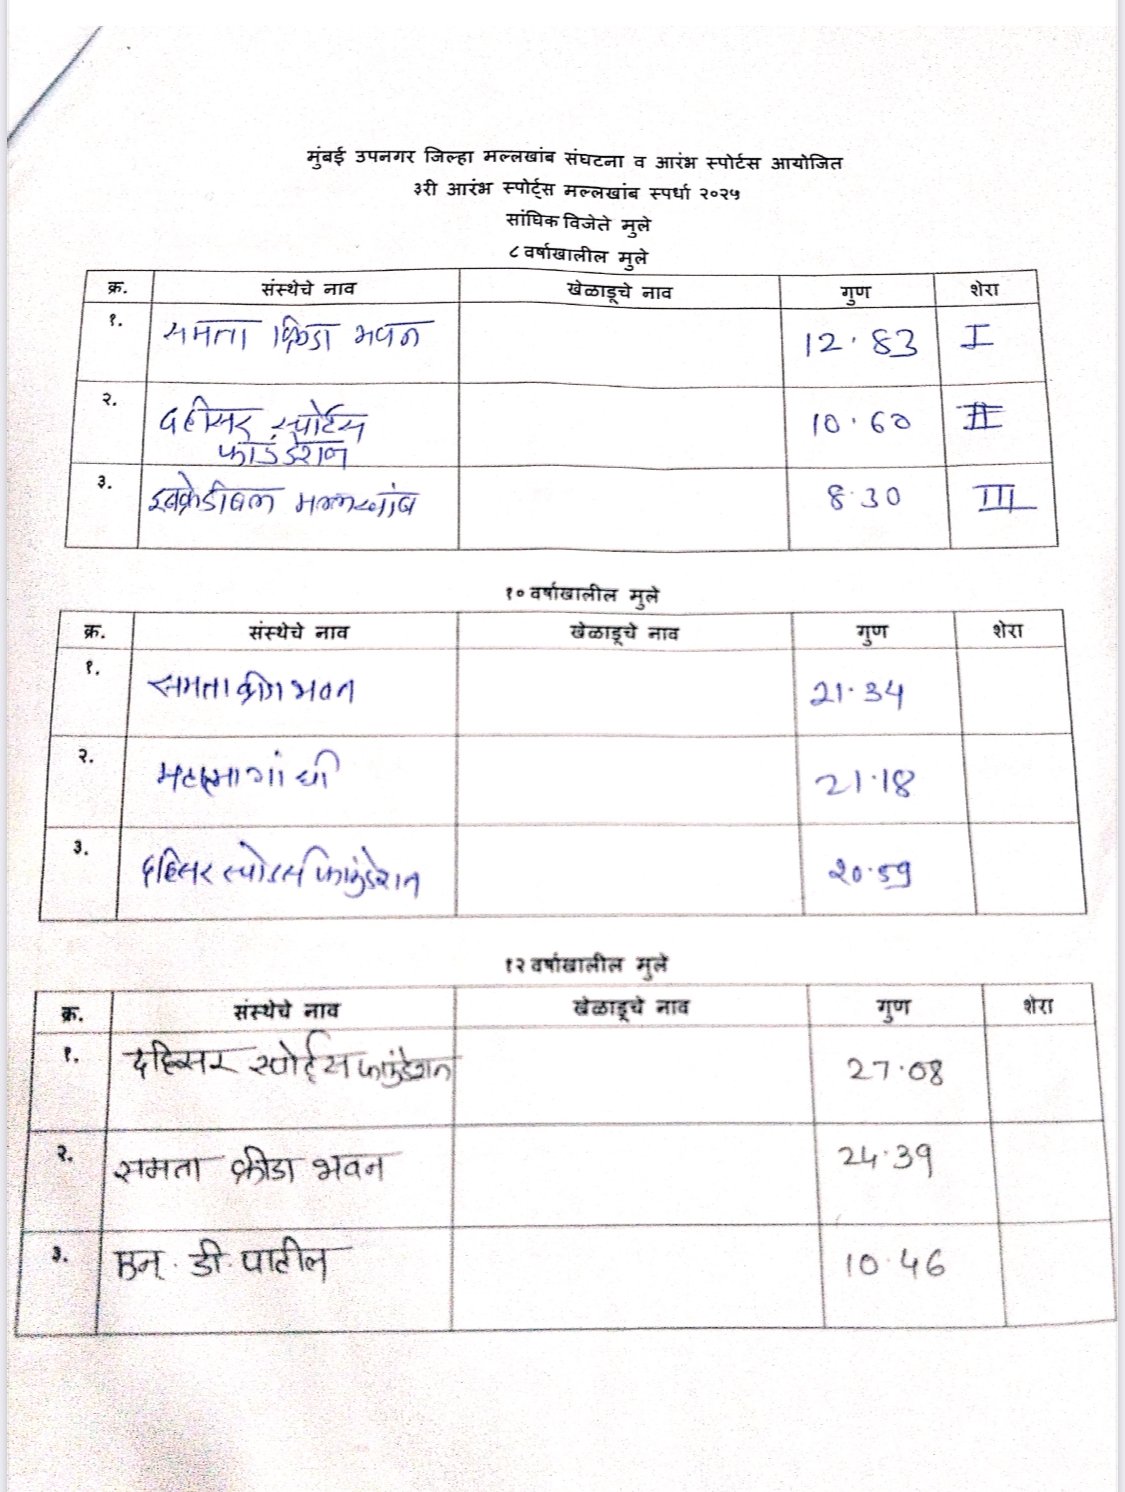 मुंबई उपनगर जिल्हा मल्लखांब संघटना व आरंभ स्पोर्टस आयोजित
३री आरंभ स्पोर्ट्स मल्लखांब स्पर्धा २०२५
सांघिक विजेते मुले
८ वर्षाखालील मुले
क्र. संस्थेचे नाव खेळाडूचे नाव गुण शेरा
१. समता क्रिडा भवन 12.83 I
२. दहीसर स्पोर्टस 10.60 II
फाउंडेशन
३. इनक्रेडीबल मल्लखांब 8.30 III
१० वर्षाखालील मुले
क्र. संस्थेचे नाव खेळाडूचे नाव गुण शेरा
१. समता क्रीडा भवन 21.34
२. महात्मा गांधी 21.18
३. दहिसर स्पोर्टस फाउंडेशन 20.59
१२ वर्षाखालील मुले
क्र. संस्थेचे नाव खेळाडूचे नाव गुण शेरा
१. दहिसर स्पोर्ट्स फाउंडेशन 27.08
२. समता क्रीडा भवन 24.39
३. एन. डी. पाटील 10.46